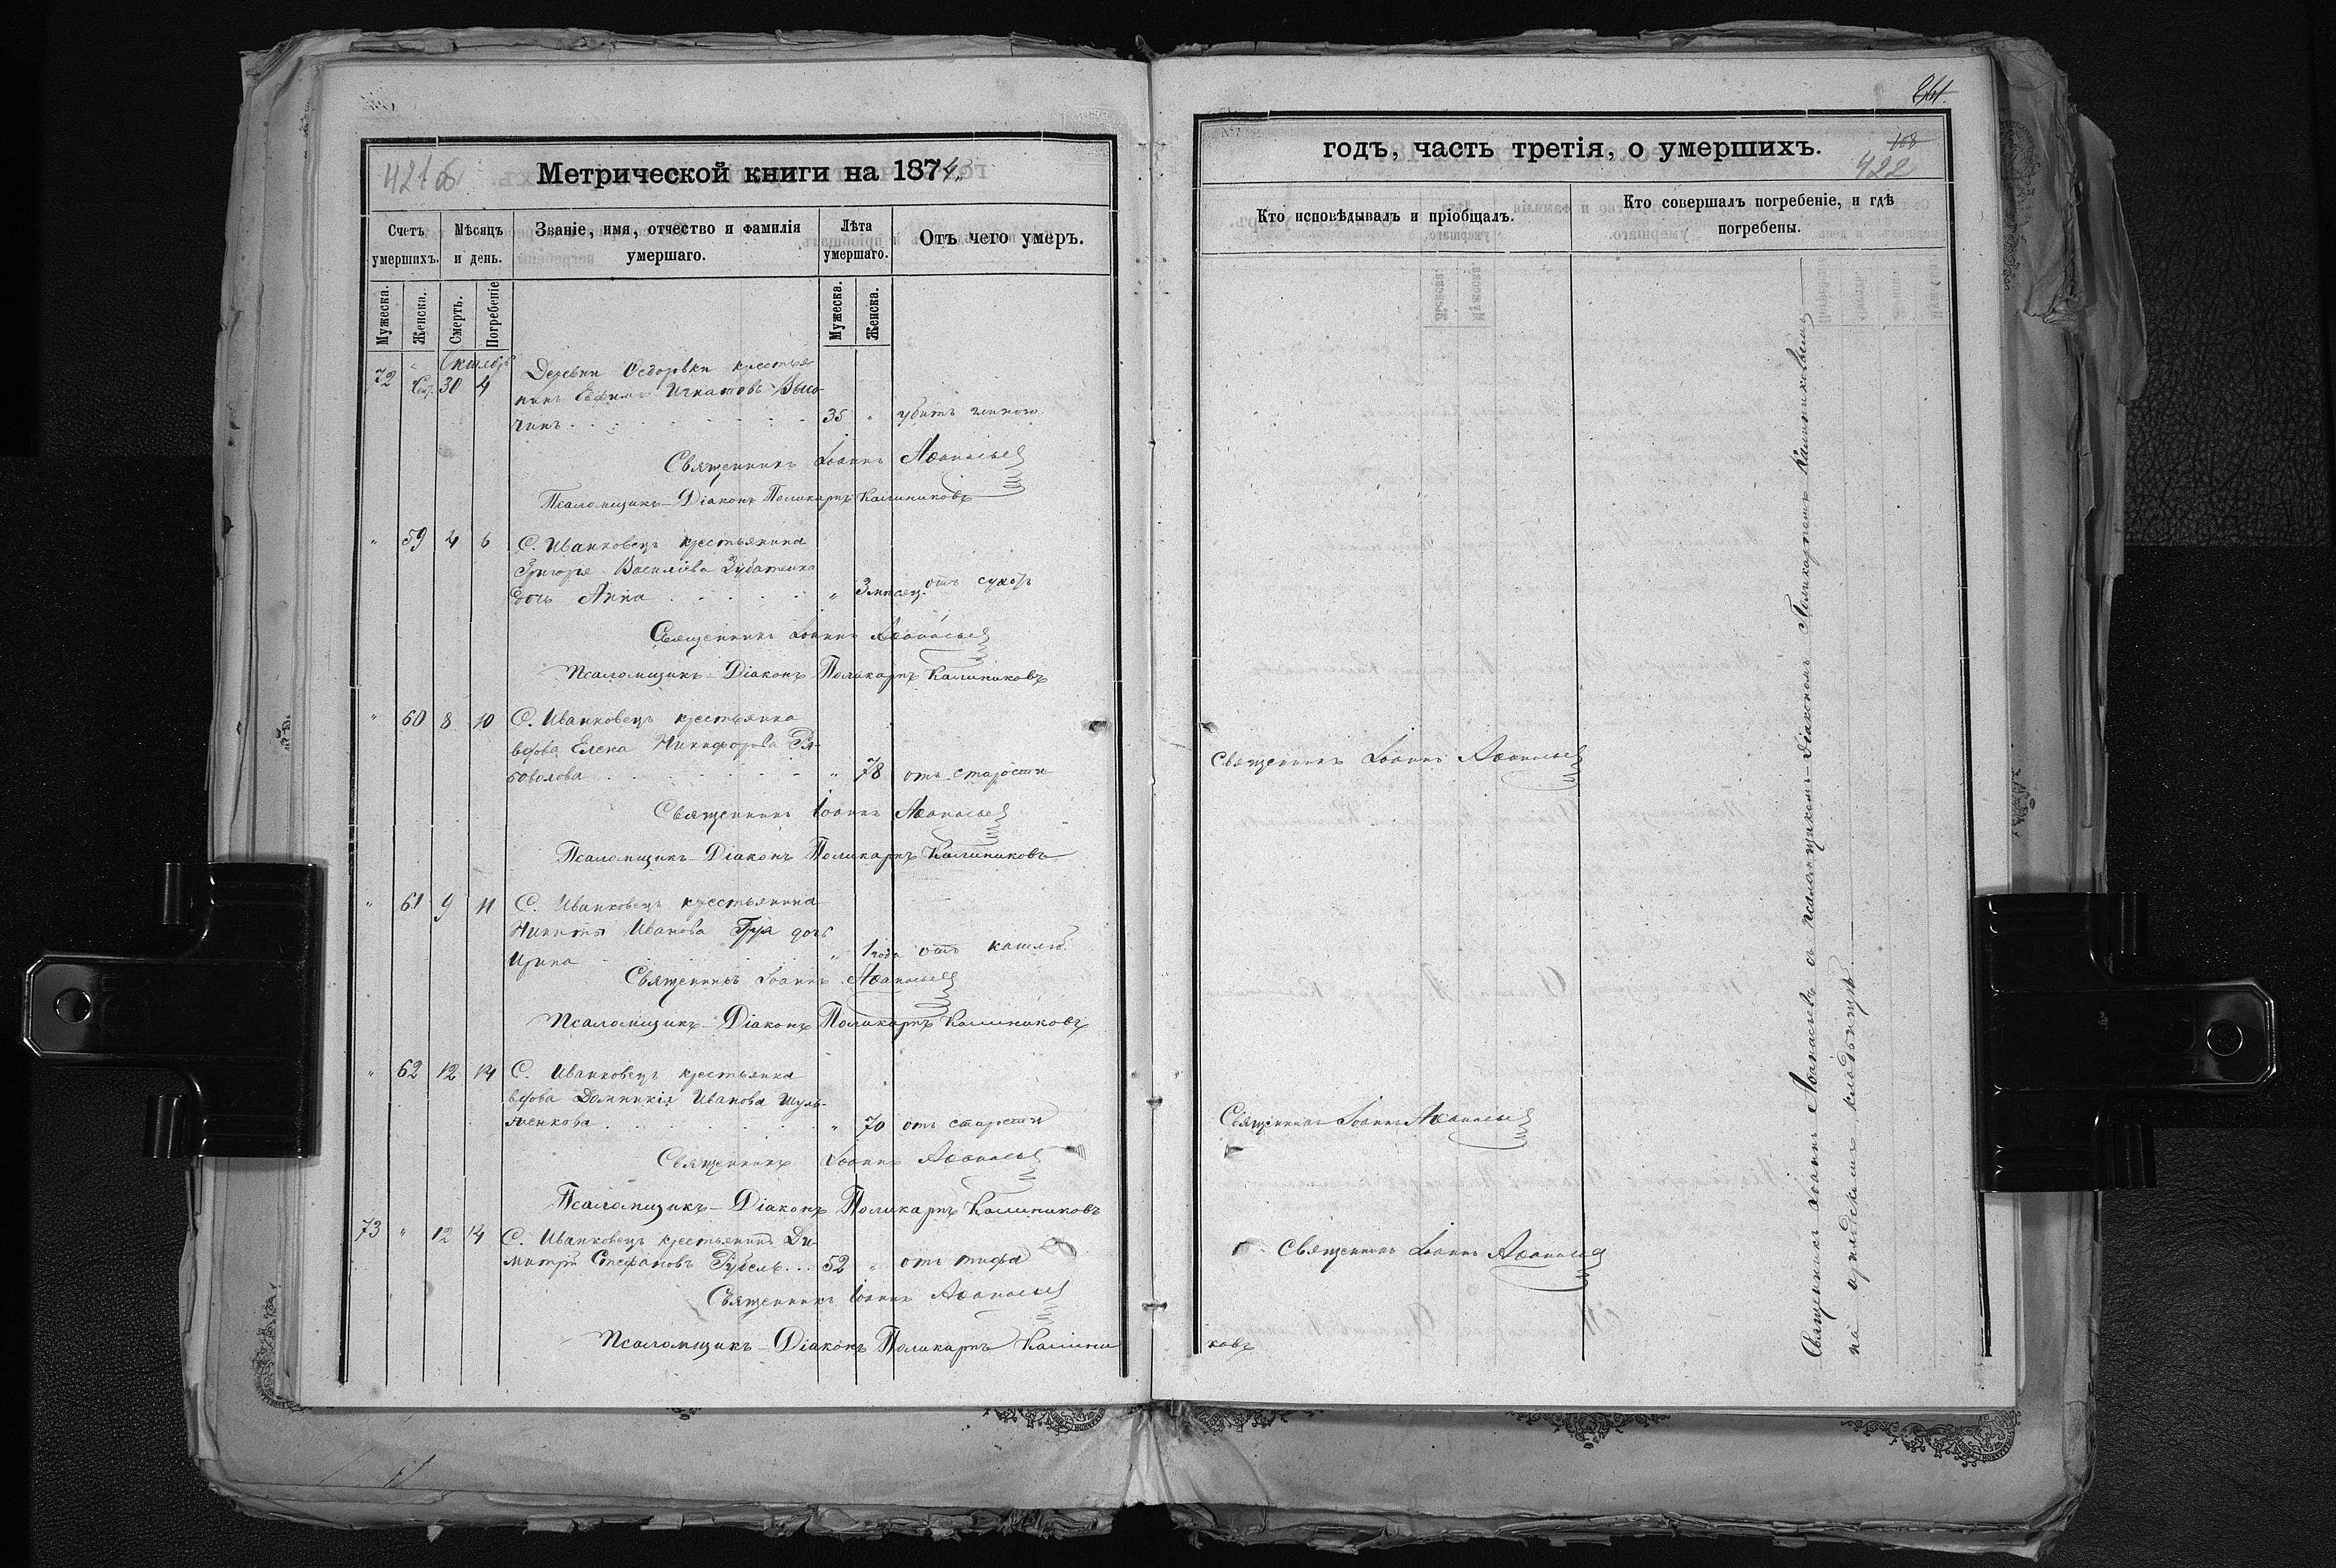 421 об
Метрической книги на 1874.
Счетъ умершихъ.
Мѣсяцъ и день.
Званіе, имя, отчество и фамилія умершаго.
Лѣта умершаго.
Отъ чего умеръ.
Мужеска.
Женска.
Смерть.
Погребеніе
Мужеска.
Женска.
Октябрь
72 " Сен. 30 4 Деревни Федоровки крестья
нинъ Ефимъ Игнатовъ Высо-
чинъ 35 " убитъ глиною
Священникъ Іоаннъ Аѳанасьев
Псаломщикъ-Діаконъ Поликарпъ Калиниковъ
" 59 4 6 С. Иванковецъ крестьянина
Григорія Василіева Зубатенка
дочь Анна " 3 мѣсяц. отъ сухот
Священникъ Іоаннъ Аѳанасьев
Псаломщикъ-Діаконъ Поликарпъ Калиниковъ
" 60 8 10 С. Иванковецъ крестьянка
вдова Елена Никифорова Ря-
боволова " 78 отъ старости
Священникъ Іоаннъ Аѳанасьев
Псаломщикъ-Діаконъ Поликарпъ Калиниковъ
" 61 9 11 С. Иванковецъ крестьянина
Никиты Иванова дочь
Ирина " 1 года отъ кашля
Священникъ Іоаннъ Аѳанасьев
Псаломщикъ-Діаконъ Поликарпъ Калиниковъ
" 62 12 14 С. Иванковецъ крестьянка
вдова Домникія Иванова Шуль-
женкова " 70 отъ старости
Священникъ Іоаннъ Аѳанасьев
Псаломщикъ-Діаконъ Поликарпъ Калиниковъ
73 " 12 14 С. Иванковецъ крестьянинъ Ди-
митрій Стефановъ Рубель 52 " отъ тифа
Священникъ Іоаннъ Аѳанасьев
Псаломщикъ-Діаконъ Поликарпъ Калини
годъ, часть третія, о умершихъ.
108
422
Кто исповѣдывалъ и пріобщалъ.
Кто совершалъ погребеніе, и гдѣ
погребены.
Священникъ Іоаннъ Аѳанасьев
Священникъ Іоаннъ Аѳанасьев
Священникъ Іоаннъ Аѳанасьев
ковъ
Священникъ Іоаннъ Аѳанасьевъ съ псаломщикомъ-Діакономъ Поликарпомъ Калиниковымъ
на приходскомъ кладбищѣ.